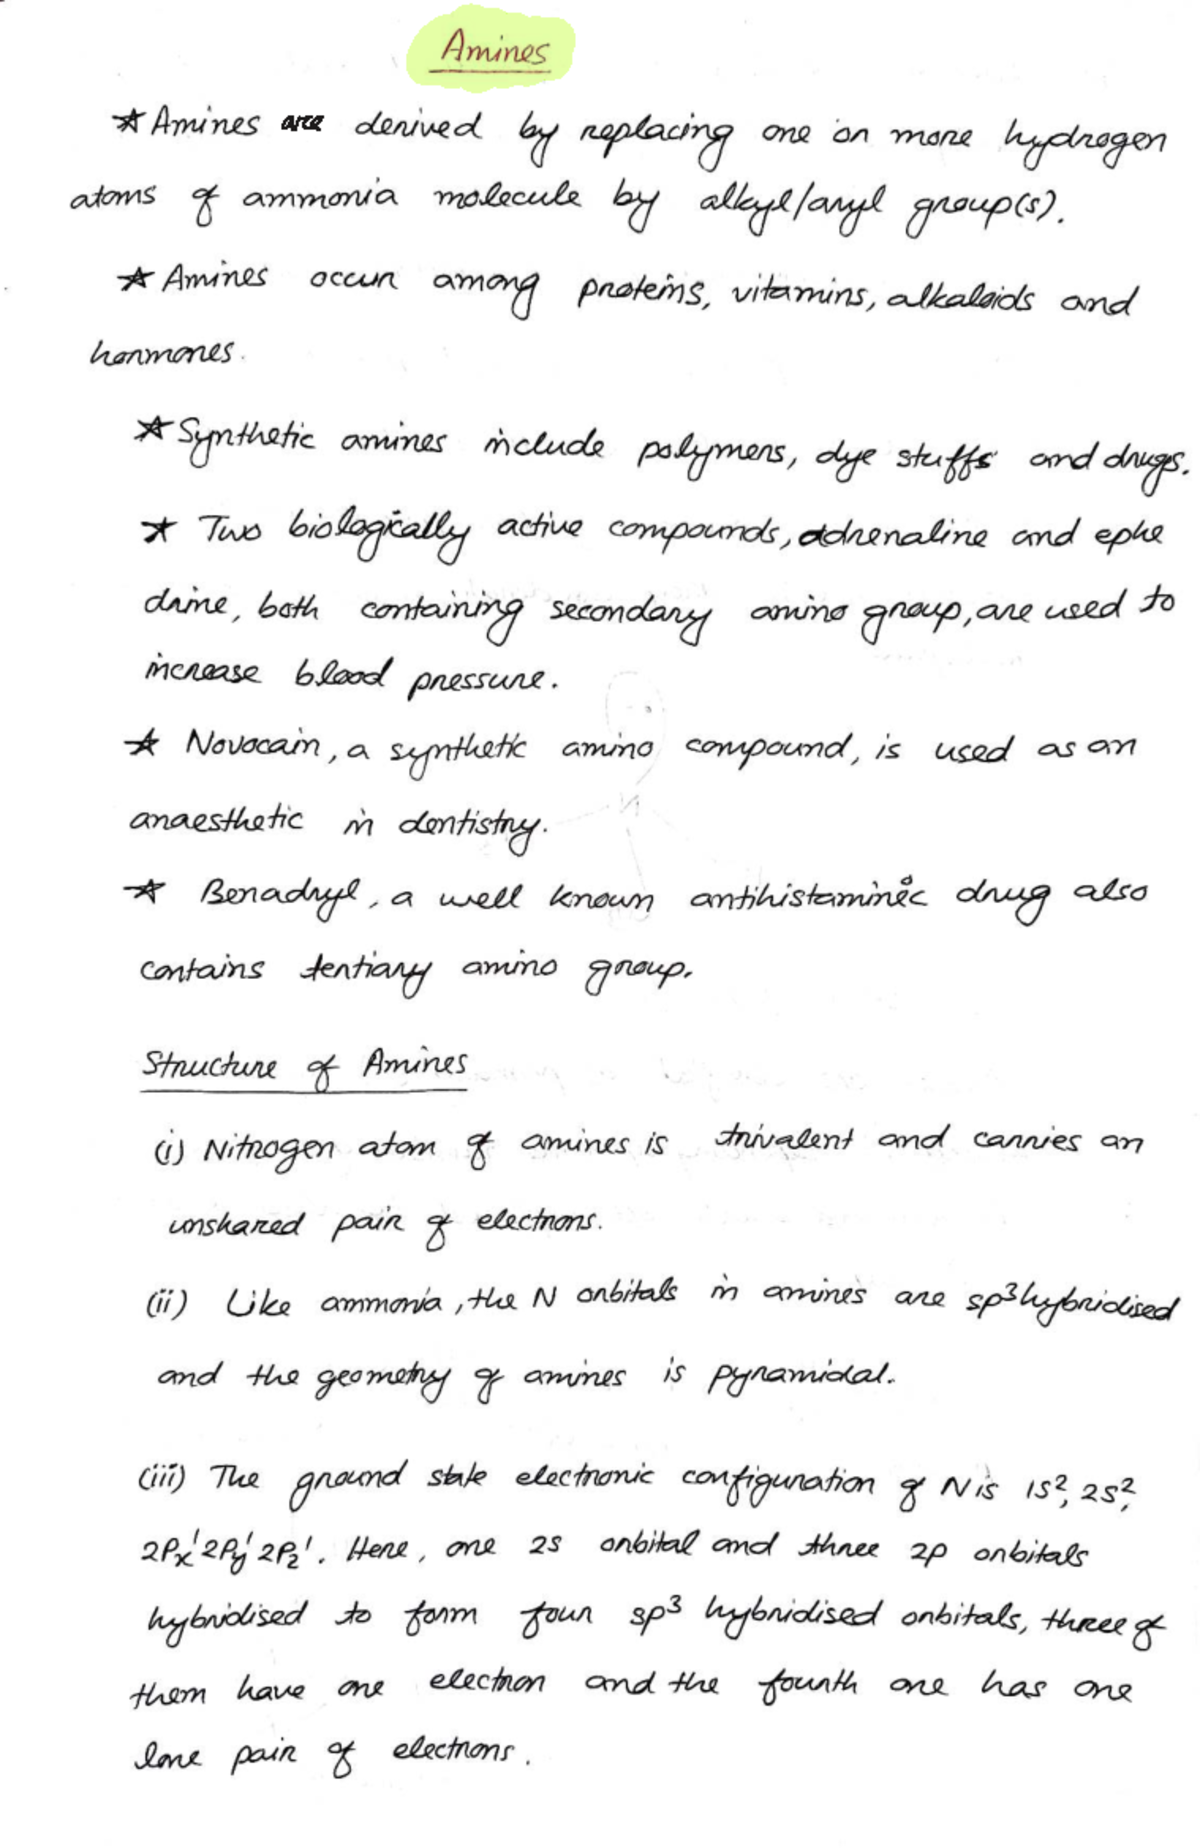 Amines
* Amines are derived by replacing one or more hydrogen
atoms of ammonia molecule by alkyl/aryl group(s).
* Amines occur among proteins, vitamins, alkaloids and
hormones.
* Synthetic amines include polymers, dye stuffs and drugs.
* Two biologically active compounds, adrenaline and ephe
drine, both containing secondary amino group, are used to
increase blood pressure.
* Novocain, a synthetic amino compound, is used as an
anaesthetic in dentistry.
* Benadryl, a well known antihistaminic drug also
contains tertiary amino group.
Structure of Amines
(i) Nitrogen atom of amines is trivalent and carries an
unshared pair of electrons.
(ii) Like ammonia, the N orbitals in amines are sp³ hybridised
and the geometry of amines is pyramidal.
(iii) The ground state electronic configuration of N is 1s², 2s²,
2Px¹ 2Py¹ 2Pz¹. Here, one 2s orbital and three 2p orbitals
hybridised to form four sp³ hybridised orbitals, three of
them have one electron and the fourth one has one
lone pair of electrons.